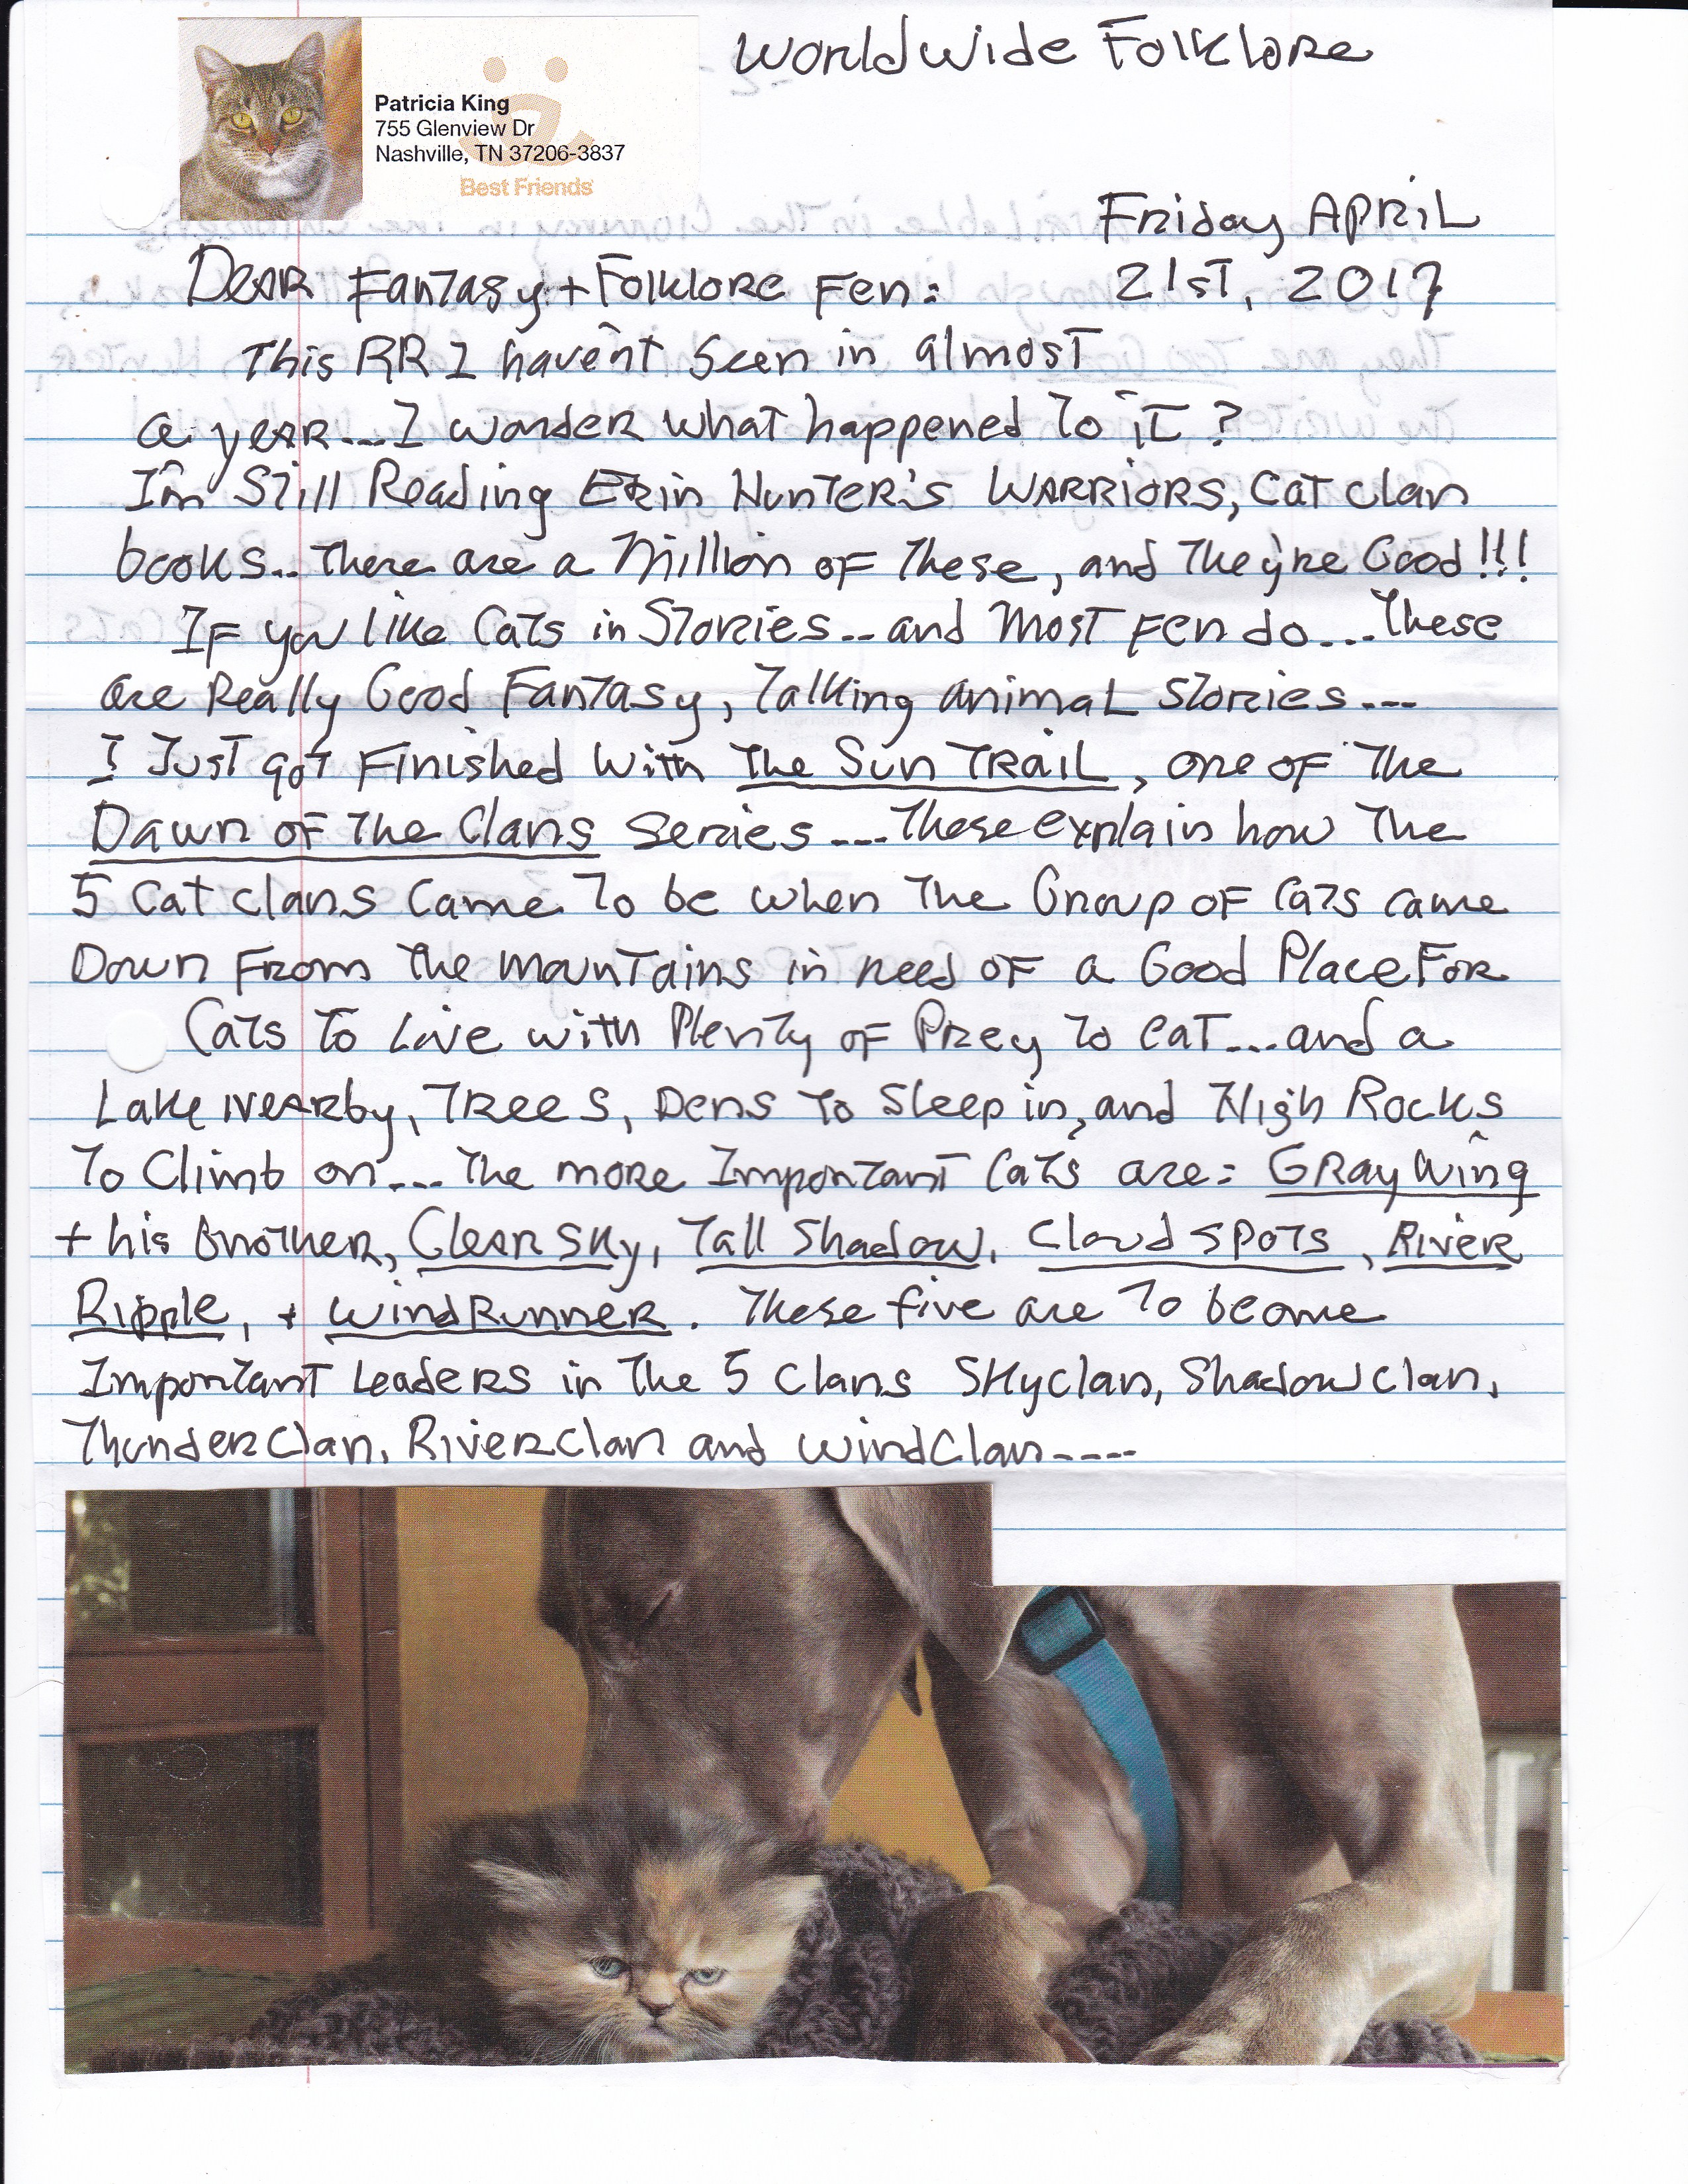 WorldWide Folklore
Patricia King
755 Glenview Dr
Nashville, TN 37206-3837
Best Friends
Friday April
21st, 2017
Dear Fantasy + Folklore Fen:
This RR I haven't seen in almost
a year.... I wonder what happened to it?
I'm still Reading Erin Hunter's WARRIORS, Cat clan
books... There are a Million of These, and They're Good!!!
If you like Cats in Stories... and Most Fen do... These
are Really Good Fantasy, Talking animal Stories....
I Just got Finished with The Sun Trail, one of The
Dawn of The Clans Series.... These explain how The
5 Cat clans Came To be when The Group of Cats came
Down From The mountains in need of a Good Place For
Cats To Live with Plenty of Prey To eat.... and a
Lake Nearby, Trees, Dens To Sleep in, and High Rocks
To Climb on.... The more Important Cats are: Gray Wing
+ his Brother, Clear Sky, Tall Shadow, Cloud Spots, River
Ripple, + Wind Runner. These five are To become
Important Leaders in The 5 Clans Skyclan, Shadowclan,
ThunderClan, RiverClan and WindClan----